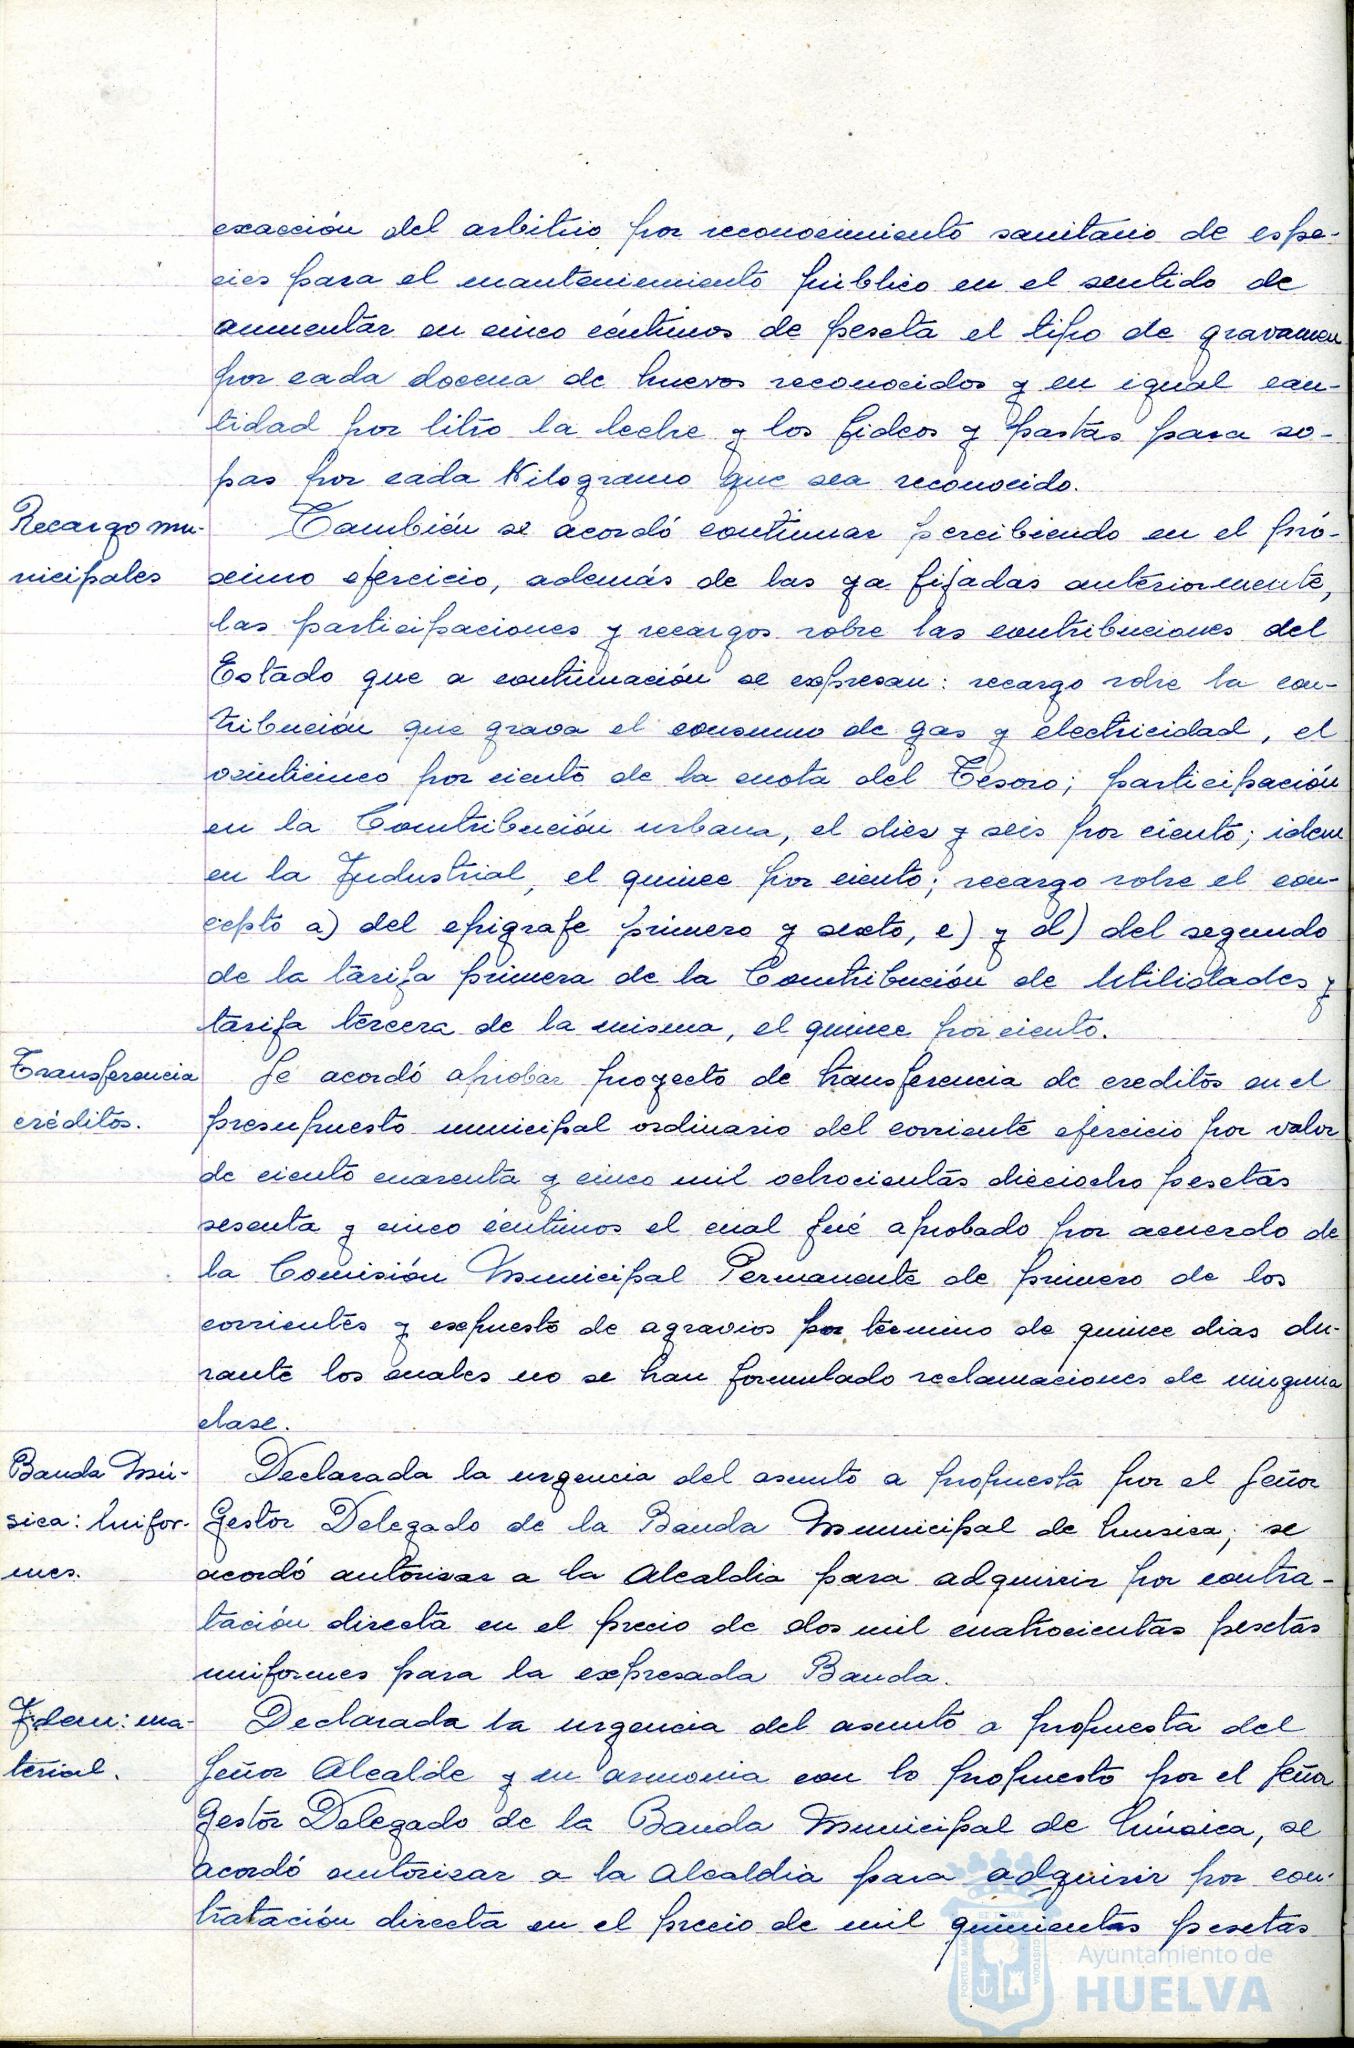 exacción del arbitrio por reconocimiento sanitario de espe-
cies para el mantenimiento público en el sentido de
aumentar en cinco céntimos de peseta el tipo de gravamen
por cada docena de huevos reconocidos y en igual can-
tidad por litro la leche y los fideos y pastas para so-
pas por cada Kilogramo que sea reconocido.
Recargo mu-
nicipales
También se acordó continuar percibiendo en el pró-
ximo ejercicio, además de las ya fijadas anteriormente,
las participaciones y recargos sobre las contribuciones del
Estado que a continuación se expresan: recargo sobre la con-
tribución que grava el consumo de gas y electricidad, el
veinticinco por ciento de la cuota del Tesoro; participación
en la Contribución urbana, el diez y seis por ciento; idem
en la Industrial, el quince por ciento; recargo sobre el con-
cepto a) del epigrafe primero y sexto, c) y d) del segundo
de la tarifa primera de la Contribución de Utilidades y
tarifa tercera de la misma, el quince por ciento.
Transferencia
créditos.
Se acordó aprobar proyecto de transferencia de creditos en el
presupuesto municipal ordinario del corriente ejercicio por valor
de ciento cuarenta y cinco mil ochocientas dieciocho pesetas
sesenta y cinco céntimos el cual fué aprobado por acuerdo de
la Comisión Municipal Permanente de primero de los
corrientes y expuesto de agravios por término de quince dias du-
rante los cuales no se han formulado reclamaciones de ninguna
clase.
Banda Mú-
sica: Unifor-
mes.
Declarada la urgencia del asunto a propuesta por el Señor
Gestor Delegado de la Banda Municipal de Musica, se
acordó autorizar a la Alcaldia para adquirir por contra-
tación directa en el precio de dos mil cuatrocientas pesetas
uniformes para la expresada Banda.
Idem: ma-
terial.
Declarada la urgencia del asunto a propuesta del
Señor Alcalde y en armonia con lo propuesto por el Señor
Gestor Delegado de la Banda Municipal de Música, se
acordó autorizar a la Alcaldia para adquirir por con-
tratación directa en el precio de mil quinientas pesetas
Ayuntamiento de
HUELVA